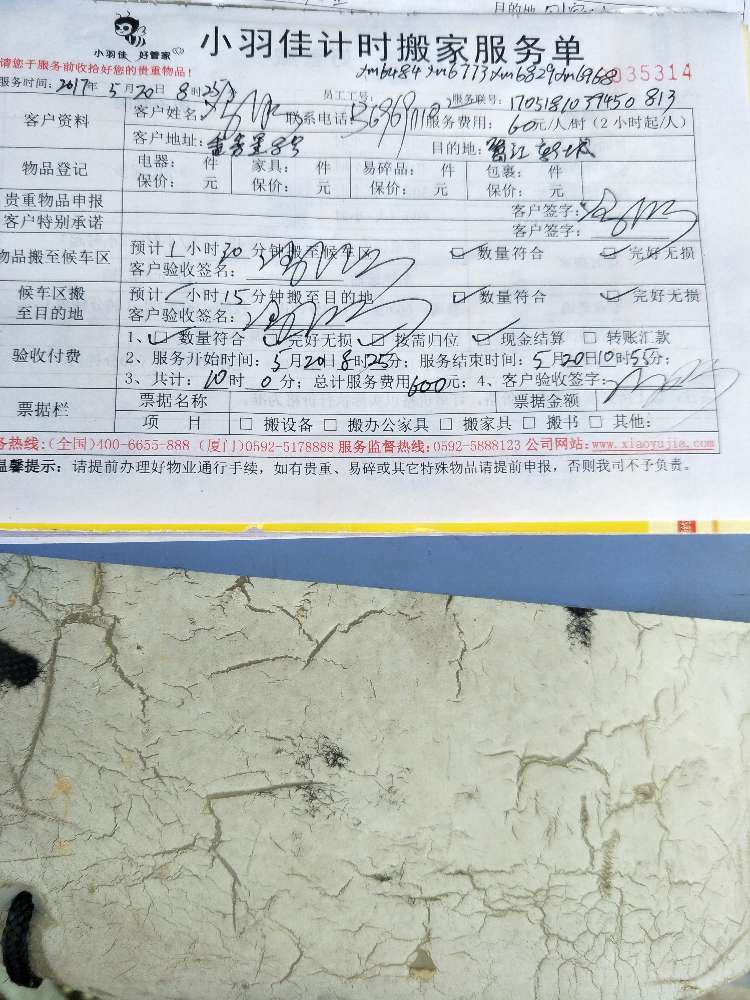 目的地
小羽佳 好管家
小羽佳计时搬家服务单
请您于服务前收拾好您的贵重物品！
xm6484 xm6773 xm6829 xm6968
035314
服务时间：2017年 5月 20日 8时25分 员工工号： 服务联号：1705181037450 813
客户资料 客户姓名： 联系电话： 服务费用：60元/人/时（2小时起/人）
客户地址： 目的地：
物品登记 电器： 件 家具： 件 易碎品： 件 包裹： 件
保价： 元 保价： 元 保价： 元 保价： 元
贵重物品申报 客户签字：
客户特别承诺 客户签字：
物品搬至候车区 预计1小时30分钟搬至候车区 ☑数量符合 ☑完好无损
客户验收签名：
候车区搬至目的地 预计 小时15分钟搬至目的地 ☑数量符合 ☑完好无损
客户验收签名：
验收付费 1、☑数量符合 ☑完好无损 ☑按需归位 ☑现金结算 □转账汇款
2、服务开始时间：5月20日8时25分；服务结束时间：5月20日10时55分；
3、共计：10时0分；总计服务费用600元；4、客户验收签字：
票据栏 票据名称 票据金额
项 目 □搬设备 □搬办公家具 □搬家具 □搬书 □其他：
务热线：(全国)400-6655-888 (厦门)0592-5178888 服务监督热线：0592-5888123 公司网站：www.xiaoyujia.com
温馨提示：请提前办理好物业通行手续，如有贵重、易碎或其它特殊物品请提前申报，否则我司不予负责。